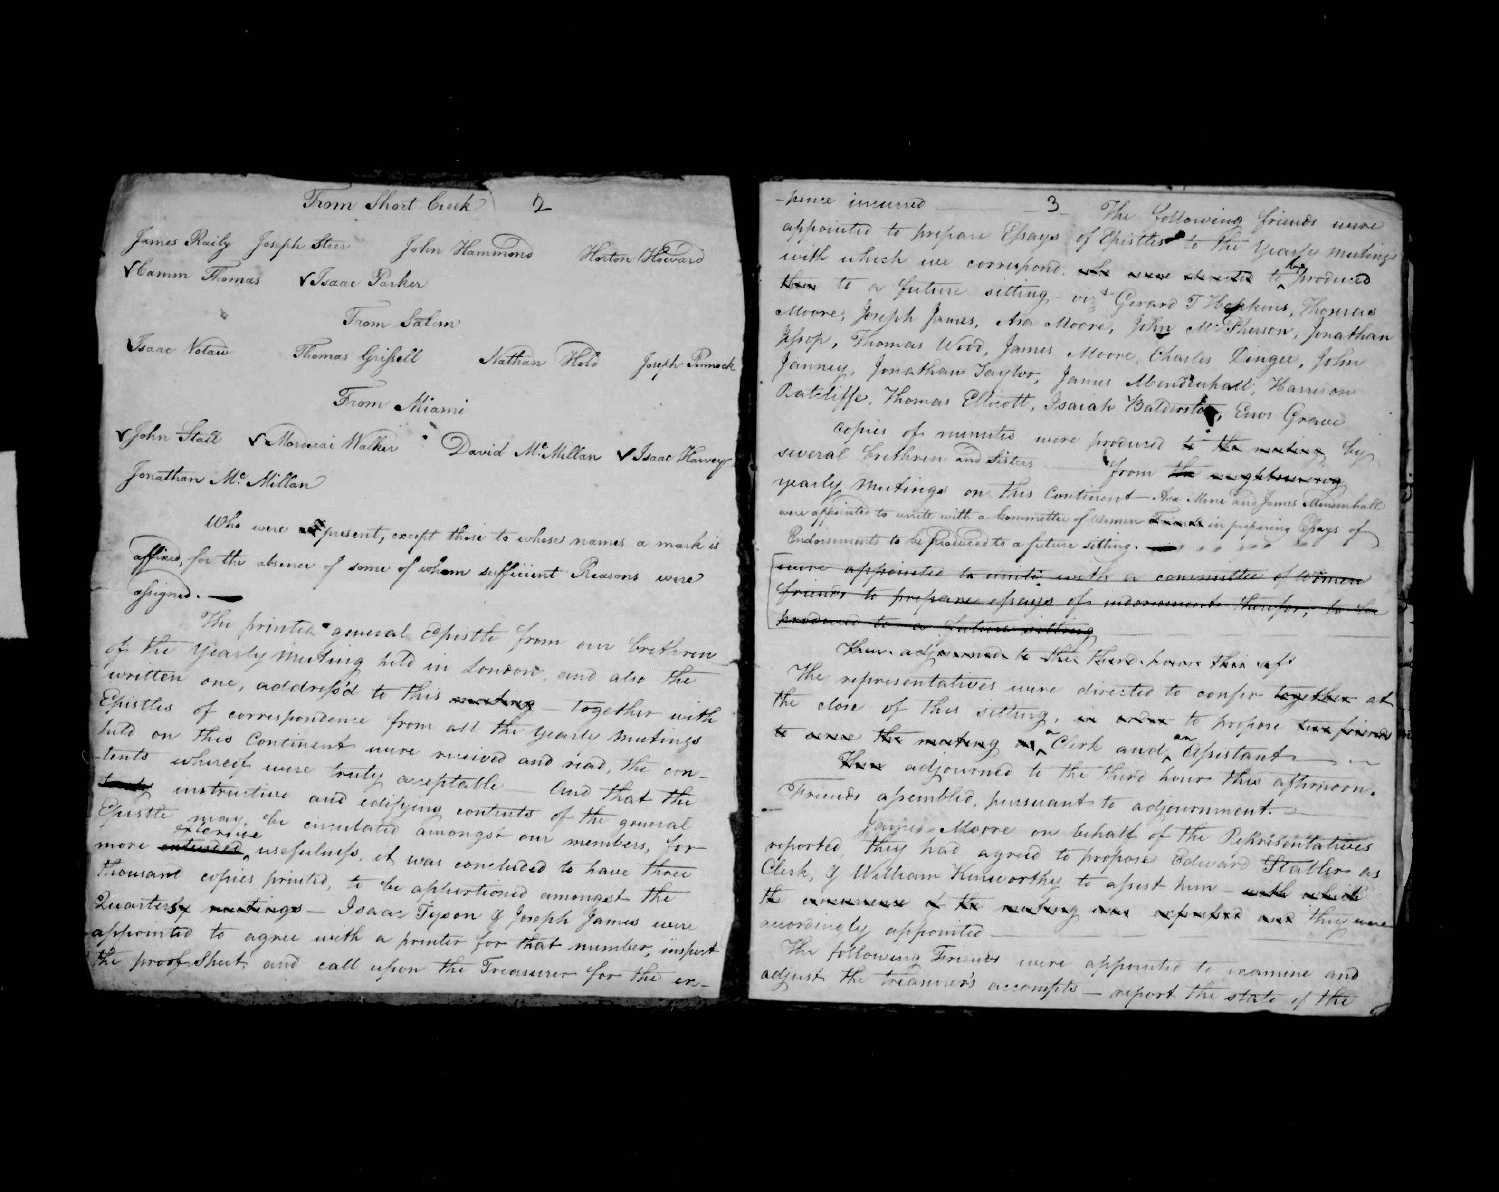 From Short Creek 2
James Raily Joseph Steer John Hammond Horton Howard
✓Camm Thomas ✓Isaac Parker
From Salem
✓Isaac Votaw Thomas Grissell Nathan Hole Joseph Pennock
From Miami
✓John Stall ✓Mordecai Walker David McMillan ✓Isaac Harvey
Jonathan McMillan
Who were present, except those to whose names a mark is
affixed, for the absence of some of whom sufficient Reasons were
assigned.
The printed general Epistle from our brethren
of the Yearly Meeting held in London, and also the
written one, address'd to this meeting — together with
Epistles of correspondence from all the Yearly Meetings
held on this Continent were received and read, the con-
-tents whereof were truly acceptable — And that the
truly instructive and edifying contents of the general
Epistle may be circulated amongst our members, for
extensive
more extended usefulness, it was concluded to have three
thousand copies printed, to be apportioned amongst the
Quarterly meetings — Isaac Tyson & Joseph James were
appointed to agree with a printer for that number, inspect
the proof Sheet and call upon the Treasurer for the ex-
-pence incurred 3 The following friends were
appointed to prepare Essays of Epistles to the Yearly meetings
with which we correspond, to be produced
them to a future sitting — viz Gerard T Hopkins, Thomas
Moore, Joseph James, Asa Moore, John McPherson, Jonathan
Jessop, Thomas Wood, James Moore, Charles Dingee, John
Janney, Jonathan Taylor, James Mendenhall, Harrison
Ratcliffe, Thomas Ellicott, Isaiah Balderston, Enos Grave
Copies of minutes were produced to the meeting by
several brethren and Sisters from the neighbouring
yearly Meetings on this Continent — Asa Moore and James Mendenhall
were appointed to unite with a Committee of women Friends in preparing Essays of
Endorsements to be produced to a future sitting.
were appointed to unite with a committee of Women
friends to prepare essays of indorsements therefor, to be
produced to a future sitting
Then adjourned to the third hour this aft
The representatives were directed to confer together at
the close of this sitting, in order to propose two friends
to serve the meeting as a Clerk and an Assistant
Then adjourned to the third hour this afternoon.
Friends assembled, pursuant to adjournment.
James Moore on behalf of the Representatives
reported, they had agreed to propose Edward Stabler as
Clerk, & William Kenworthy to assist him — with which
the concurrence of the meeting was expressed and they were
accordingly appointed
The following Friends were appointed to examine and
adjust the treasurer's accompts — report the state of the